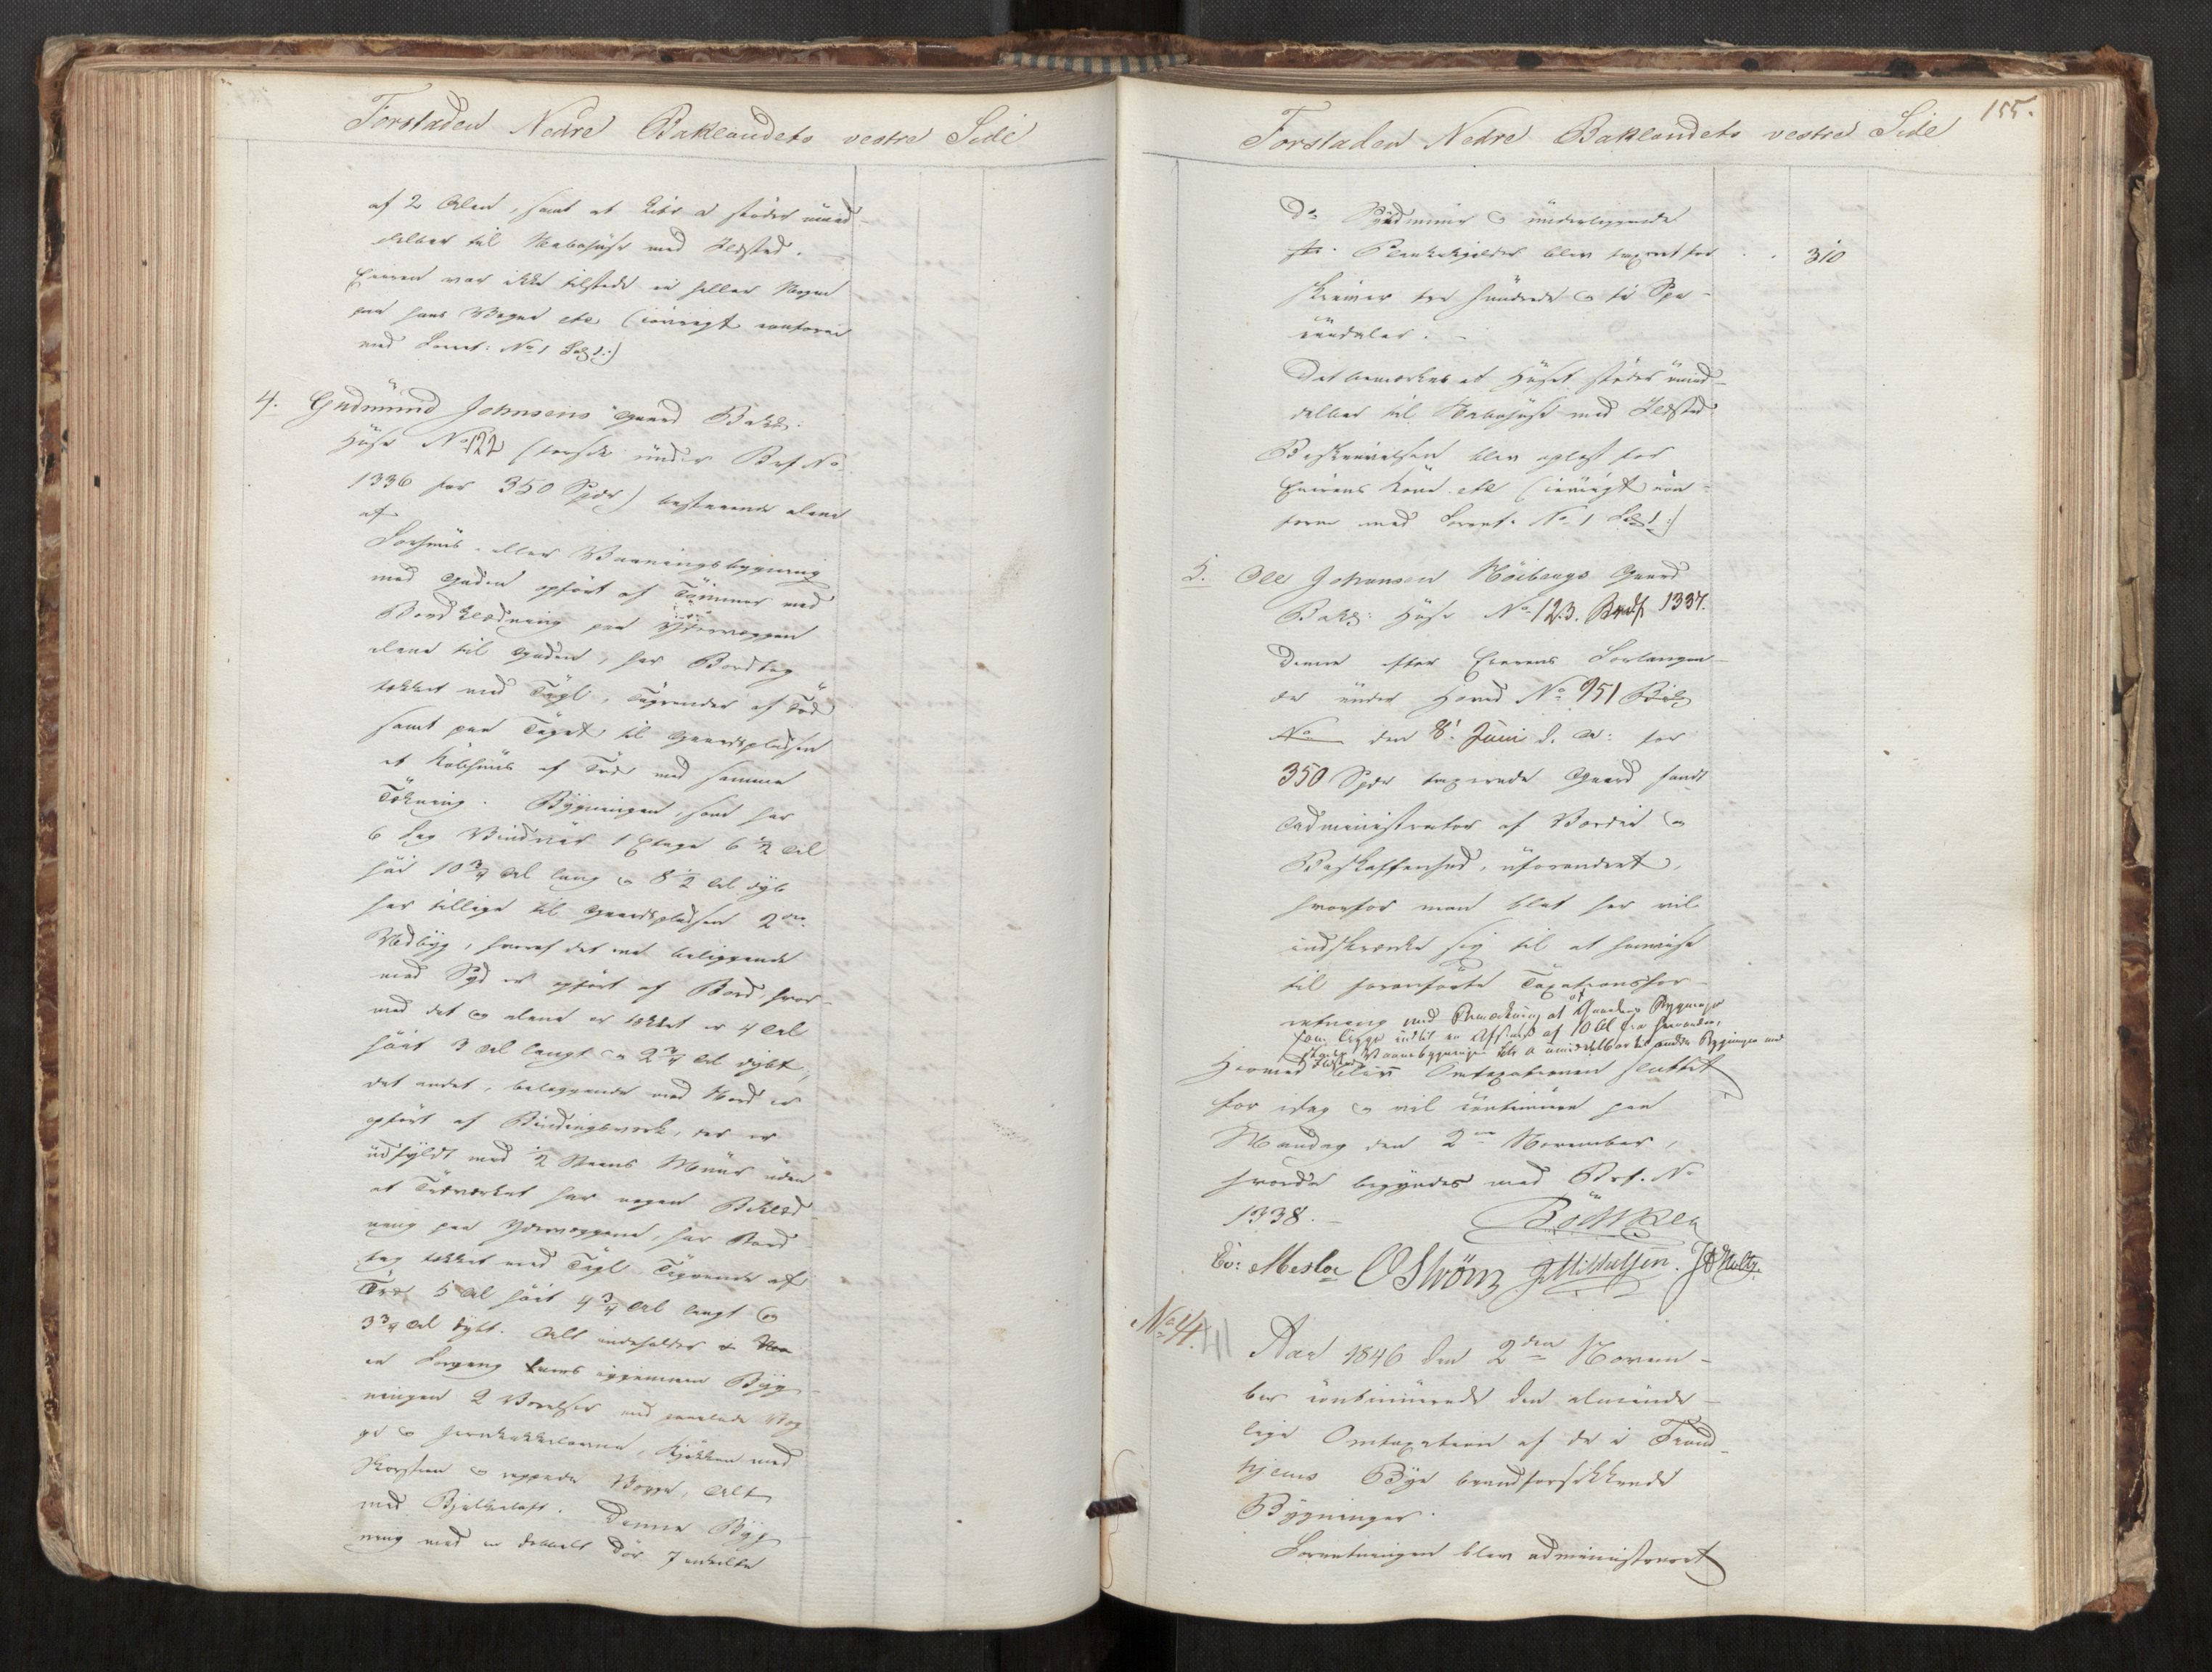 Forstaden Nedre Baklandets vestre Side
af 2 Alen, samt at Litr a støder umid-
delbar til Nabohuse med Ildsted.
Eieren var ikke tilstede ei heller Nogen
paa hans Vegne etc (iøvrigt conform
med Forret: No 1
4. Gudmund Johnsens Gaard Bakl:
Huse No 122 (forsik under Brf No
1336 for 350 Spdr) bestaaende alene
af
Forhuus- eller Vaaningsbygning
mod Gaden opført af Tømmer med
Bordklædning paa Ydervæggen
alene til Gaden, har Bordtag
tækket med Tagl, Tagrender af Træ
samt paa Taget til Gaardspladsen
et Kobhuus af Træ med samme
Tækning. Bygningen, som har
6 Fag Vinduer 1 Etage 6 1/2 Al
høi 10 3/4 Al lang og 8 1/2 Al dyb
har tillige til Gaardspladsen 2de
Udbyg, hvoraf det ene beliggende
mod Syd er opført af Bord hvor-
med det og alene er tækket er 4 Al
høit 3 Al langt og 2 3/4 Al dybt,
det andet, beliggende mod Nord er
opført af Bindingsværk, der er
udfyldt med 1/2 Steens Muur uden
at Træværket har nogen Beklæd-
ning paa Ydervæggene, har Bord-
tag tækket med Tagl Tagrende af
Træ 5 Al høit 4 3/4 Al langt og
3 3/4 Al dybt. Alt indeholder
en Forgang tvers igjennem Byg-
ningen 2 Værelser med panelede Væg-
ge og Jernkakkelovne, Kjøkken med
Skorsteen og rappede Vægge, Alt
med Bjelkeloft. Denne Byg-
ning med en dobbelt Dør 7 enkelte
155.
Forstaden Nedre Baklandets vestre Side
Do Grundmuur og underliggende
Plankekjelder blev taxeret for . . 310
skriver tre hundrede og ti Spe-
ciedaler. -
Det bemærkes at Huset støder umid-
delbar til Nabohuse med Ildsted
Beskrivelsen blev oplæst for
Eierens Kone etc (iøvrigt con-
form med Forret. No 1
5. Ole Johansen Høibergs Gaard
Bakl: Huse No 123. Brf 1337.
Denne efter Eierens Forlangen-
de under Hoved No 951
No den 8. Juni d. A: for
350 Spdr taxerede Gaard fandt
Administrator af Værdie og
Beskaffenhed, uforandret,
hvorfor man blot her vil
indskrænke sig til at henvise
til foranførte Taxationsfor-
retning med Bemærkning at af Gaardens Bygninger
som ligge indtil en Afstand af 10 Al fra hverandre,
støder Vaanebygningen Litr a umiddelbar til andre Bygninger med
Ildsted
Hermed blev Omtaxationen sluttet
for idag og vil continuere paa
Mandag den 2den November,
hvorda begyndes med Brf. No
1338. - Bödtker
Ev: Mesloe O Strøm J Mikkelsen. J H Holtz.
No 4. 41
Aar 1846 den 2den Novem-
ber continuerede den alminde-
lige Omtaxation af de i Trond-
hjems Bye brandforsikkrede
Bygninger.
Forretningen blev administreret